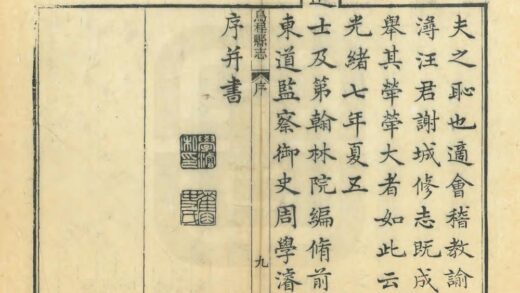 夫之恥也適會稽教諭
潯汪君謝城修志既成
舉其犖犖大者如此云
光緒七年夏五
進士及第翰林院編脩前
東道監察御史周學濬
序并書
烏程縣志
序
九